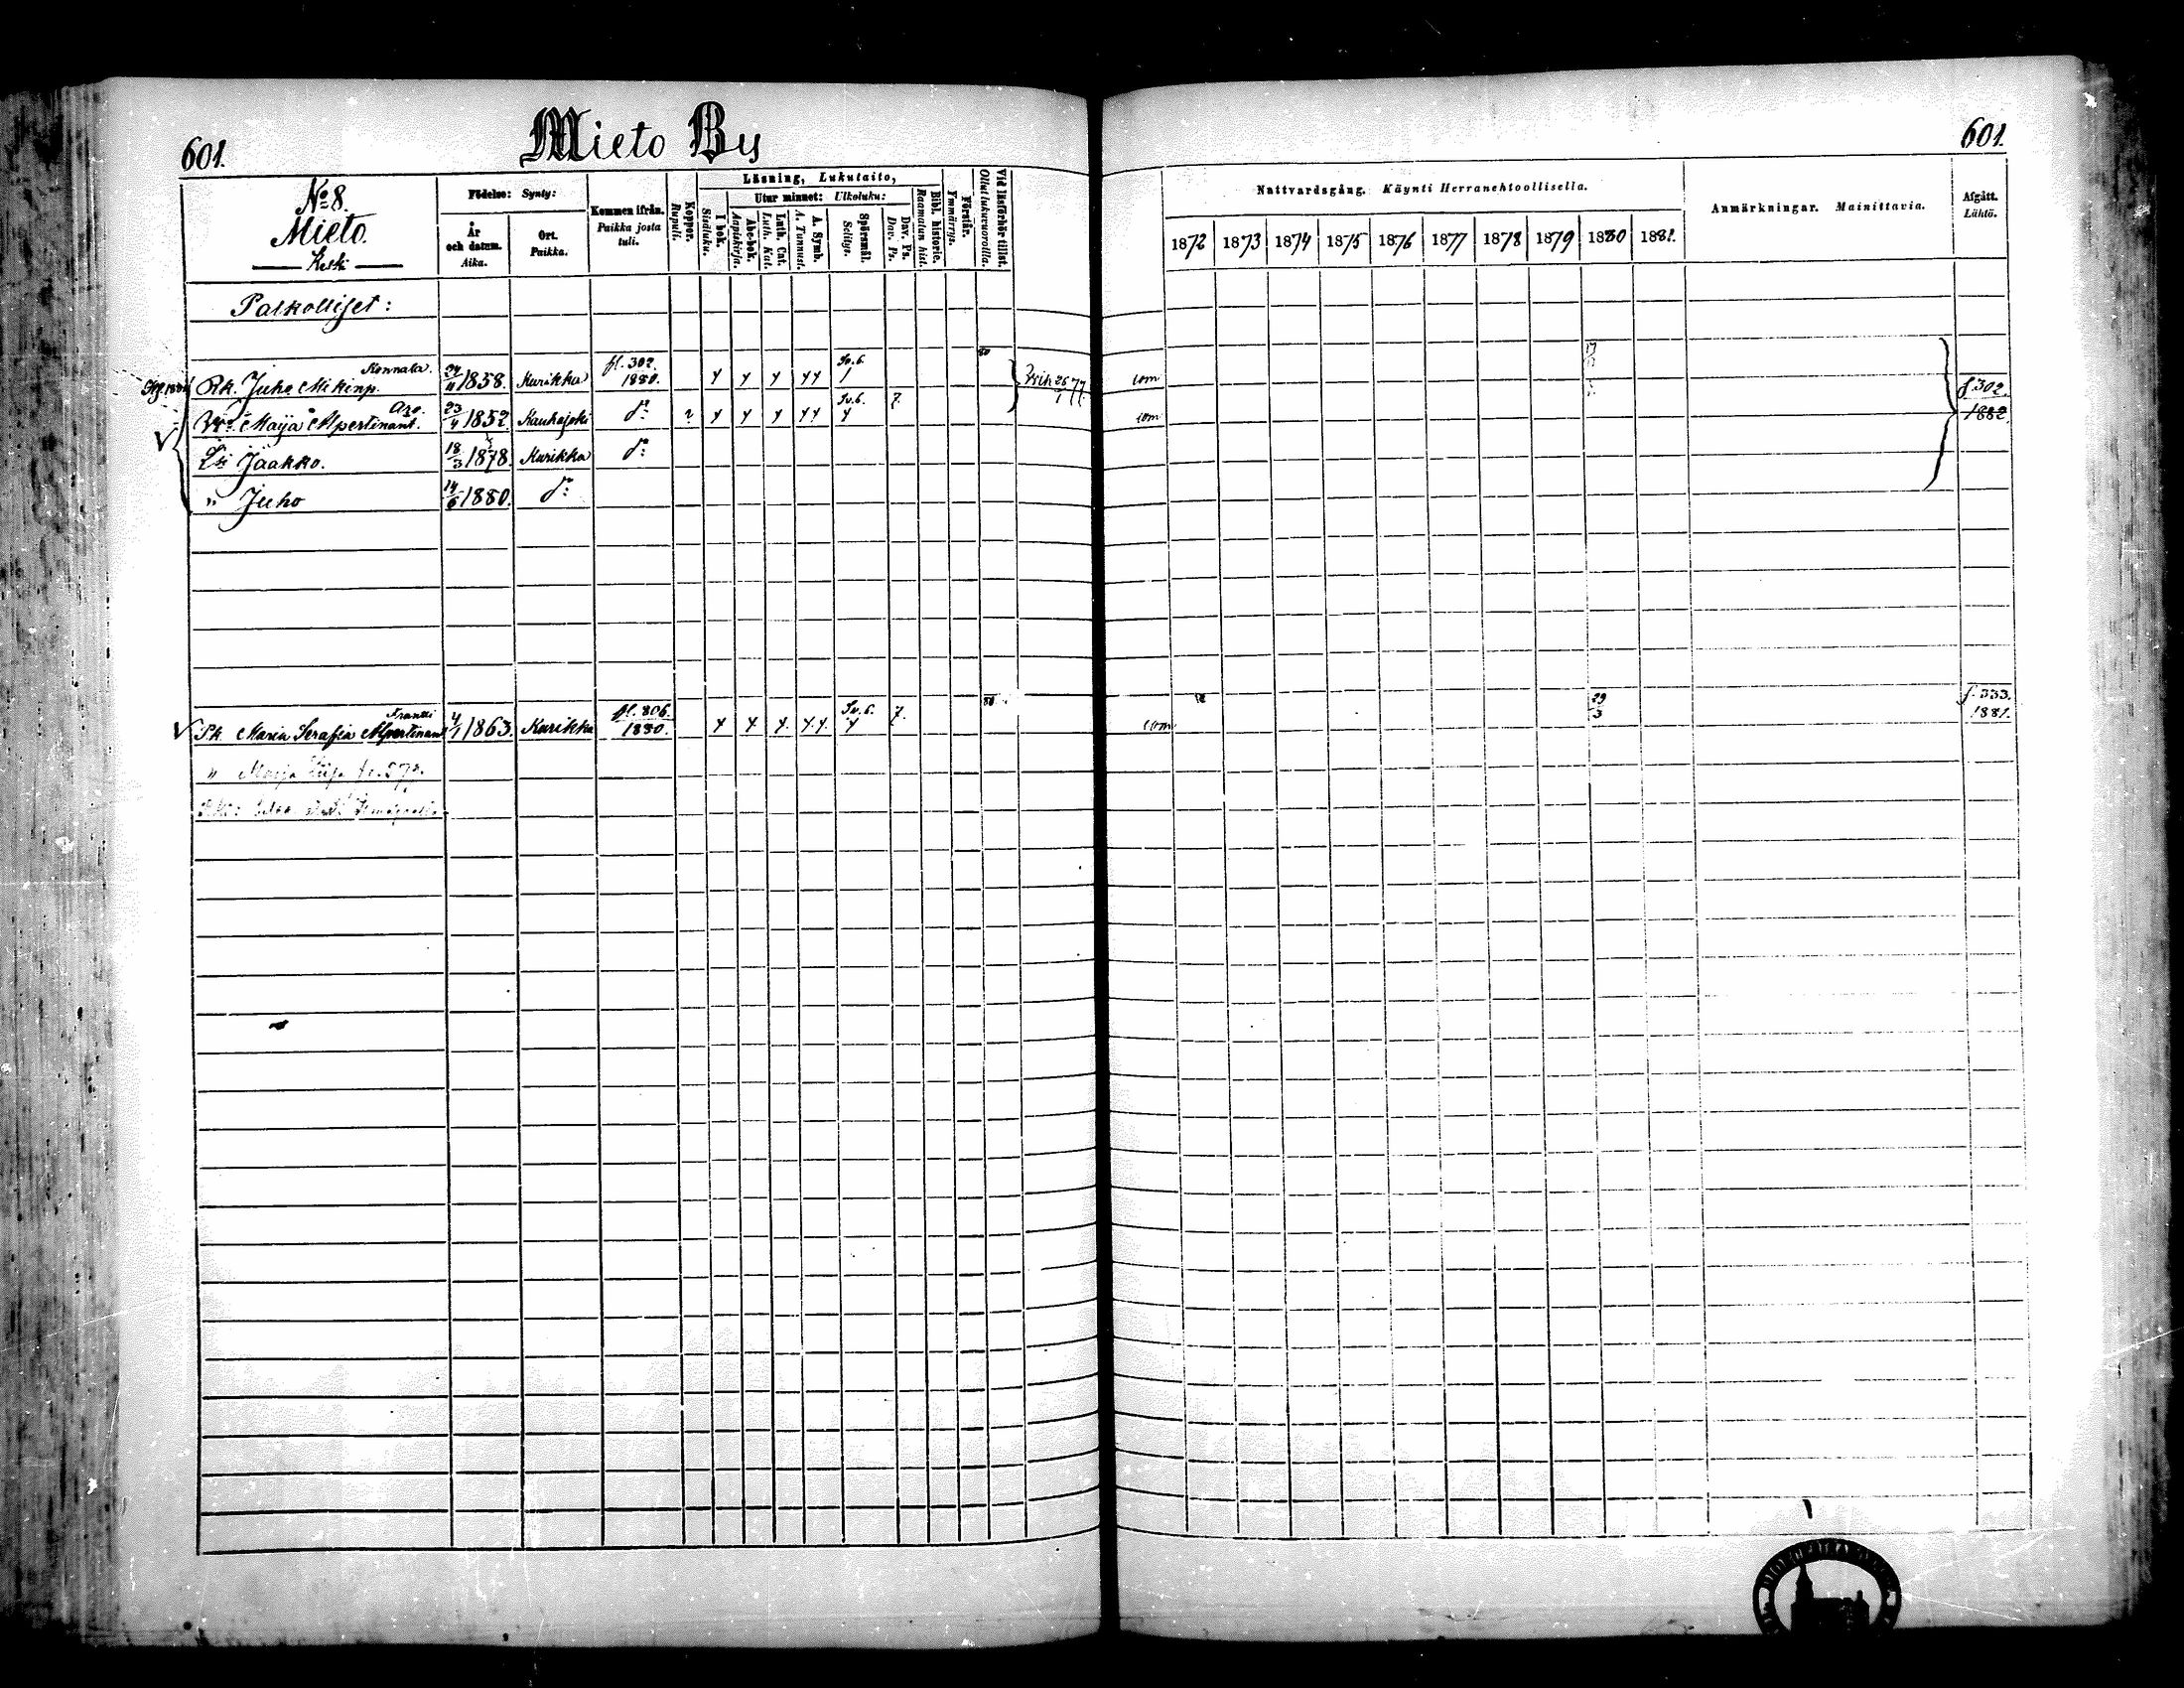 601.
Mieto By
601.
No 8.
Mieto.
Keski
Födelse: Synty:
År och datum. Aika.
Ort. Paikka.
Kommen ifrån. Paikka josta tuli.
Koppor. Rupuli.
Läsning, Lukutaito,
I bok. Sisäluku.
Utur minnet: Ulkoluku:
Abc-bok. Aapiskirja.
Luth. Cat. Luth. Kat.
A. Symb. A. Tunnust.
Spörsmål. Selitys.
Dav. Ps. Dav. Ps.
Bibl. historie. Raamatun hist.
Förstår. Ymmärrys.
Vid läsförhör tillst. Ollut lukuvuoroilla.
Nattvardsgång. Käynti Herranehtoollisella.
1872 1873 1874 1875 1876 1877 1878 1879 1880 1881.
Anmärkningar. Mainittavia.
Afgått. Lähtö.
Palkolliset:
Rk. Juho Mikinp. Konnala. 1858. Kurikka fl. 302. 1880. Sv. 6. 80 com f 302. 1882.
Maija Alpertinant. Aro. 23/4 1852. Kauhajoki do Sv. 6. 7. com
Jaakko. 18/3 1878. Kurikka do
" Juho 14/6 1880. do
Pk. Maria Serafia Alpertinant Frantti 4/1 1863. Kurikka fl. 806. 1880. Sv. 6. 7. 80 com 29/3 f. 333. 1881.
" Maija